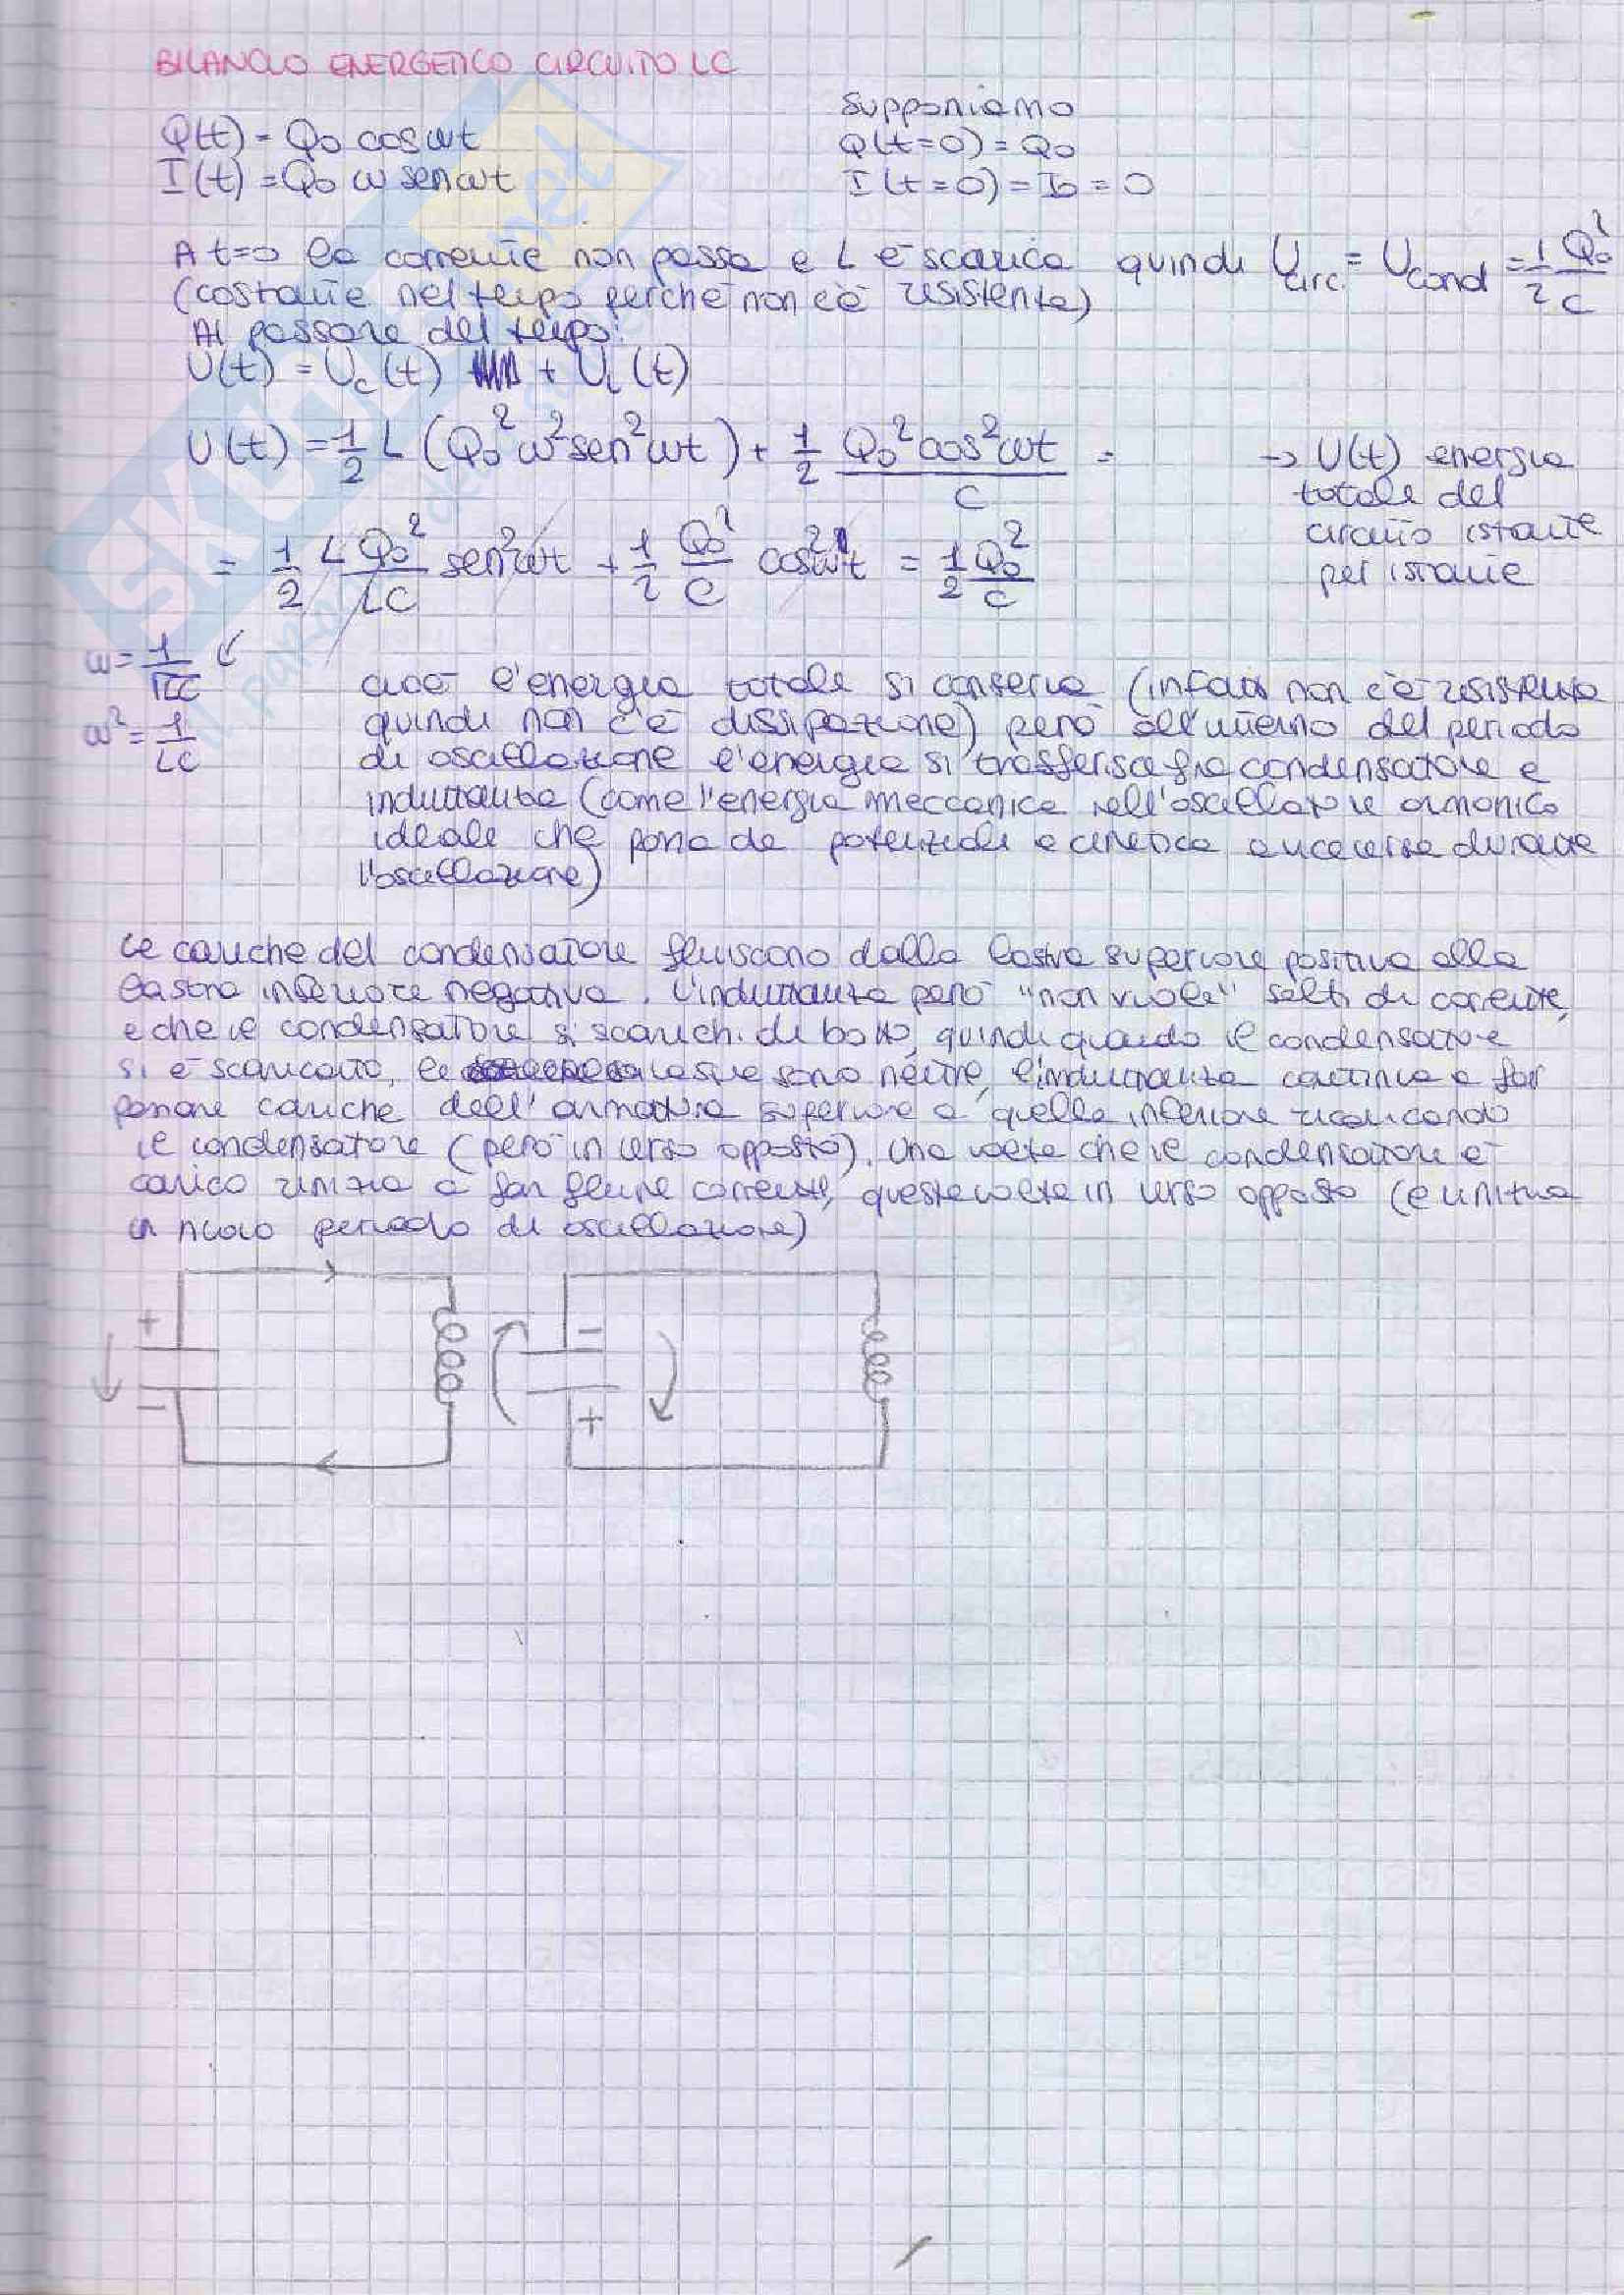 BILANCIO ENERGETICO CIRCUITO LC
Q(t) = Q₀ cos ωt
I(t) = Q₀ ω sen ωt
Supponiamo
Q(t=0) = Q₀
I(t=0) = I₀ = 0
A t=0 la corrente non passa e L è scarica quindi U circ. = U cond = 1/2 Q₀²/C
(costante nel tempo perché non c'è resistenza)
Al passare del tempo:
U(t) = Uc(t) + UL(t)
U(t) = 1/2 L (Q₀² ω² sen² ωt) + 1/2 Q₀² cos² ωt / C =
→ U(t) energia
totale del
circuito istante
per istante
= 1/2 L Q₀²/LC sen² ωt + 1/2 Q₀²/C cos² ωt = 1/2 Q₀²/C
ω = 1/√LC
ω² = 1/LC
cioè l'energia totale si conserva (infatti non c'è resistenza
quindi non c'è dissipazione) però all'interno del periodo
di oscillazione l'energia si trasferisce fra condensatore e
induttanza (come l'energia meccanica nell'oscillatore armonico
ideale che passa da potenziale a cinetica e viceversa durante
l'oscillazione)
Le cariche del condensatore fluiscono dalla lastra superiore positiva alla
lastra inferiore negativa. L'induttanza però "non vuole" salti di corrente,
e che il condensatore si scarichi di botto, quindi quando il condensatore
si è scaricato, e lastre sono neutre, l'induttanza continua a far
passare cariche dall'armatura superiore a quella inferiore ricaricando
il condensatore (però in verso opposto). Una volta che il condensatore è
carico rinizia a far fluire corrente, questa volta in verso opposto (e inizia
un nuovo periodo di oscillazione)
+
−
−
+
SKUOLA.net